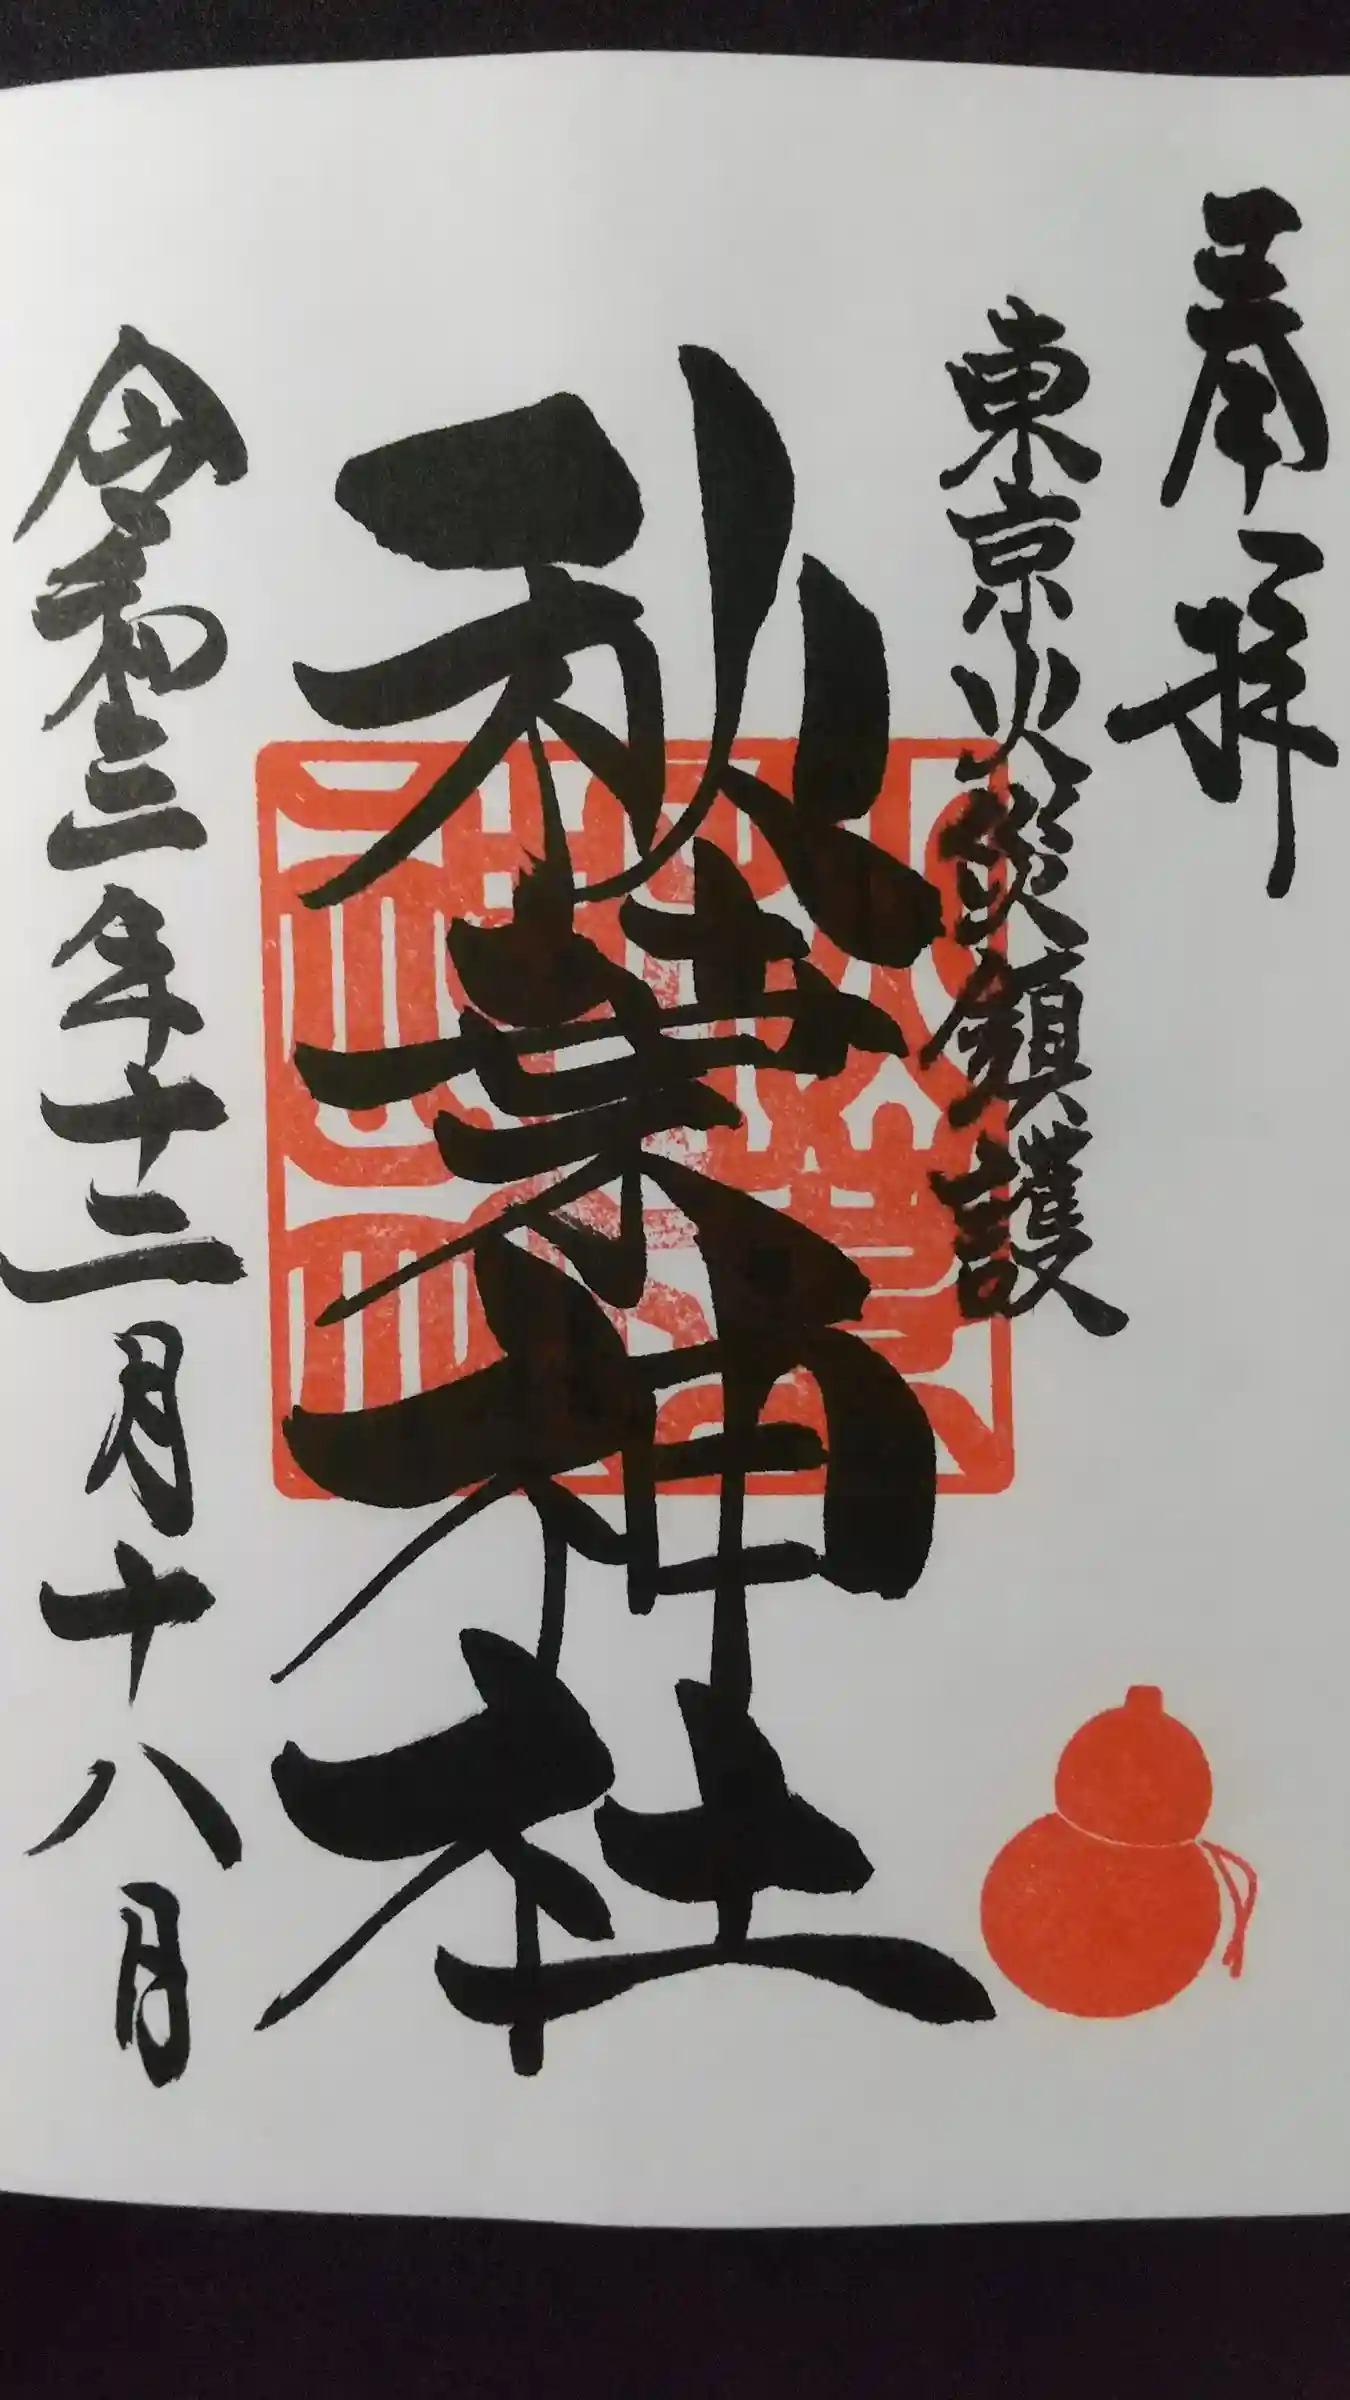 奉拝
東京火災鎮護
秋葉神社
令和三年十二月十八日